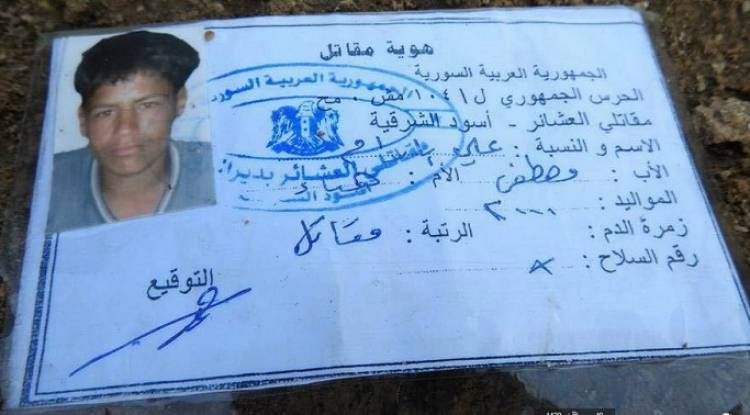 هوية مقاتل
الجمهورية العربية السورية
الحرس الجمهوري ل/١٠٤/مش . مح
مقاتلي العشائر - أسود الشرقية
الاسم و النسبة : علي
الأب : مصطفى الأم :
المواليد : ٢٠٠٠
زمرة الدم : الرتبة : مقاتل
رقم السلاح : ٨
التوقيع
الجمهورية العربية السورية
مقاتلي العشائر بدير